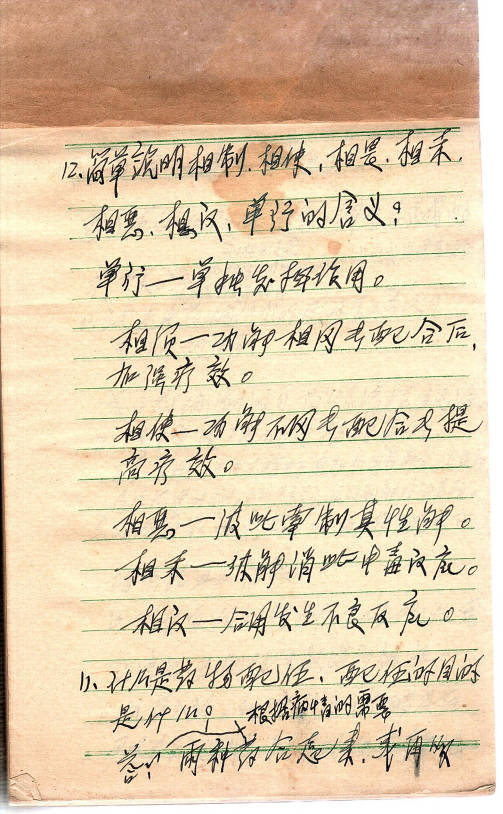 12.简单说明相制.相使,相畏.相杀.
相恶.相汉,单行的含义?
单行一单独发挥作用。
相须一功能相同者配合后,
加强疗效。
相使一功能不同者配合者提
高疗效。
相恶一彼此牵制其性能。
相杀一彼能消此中毒汉应。
相汉一合用发生不良反应。
11.什么是药物配伍.配伍的目的
是什么?根据病情的需要
答:两种药合起来.或